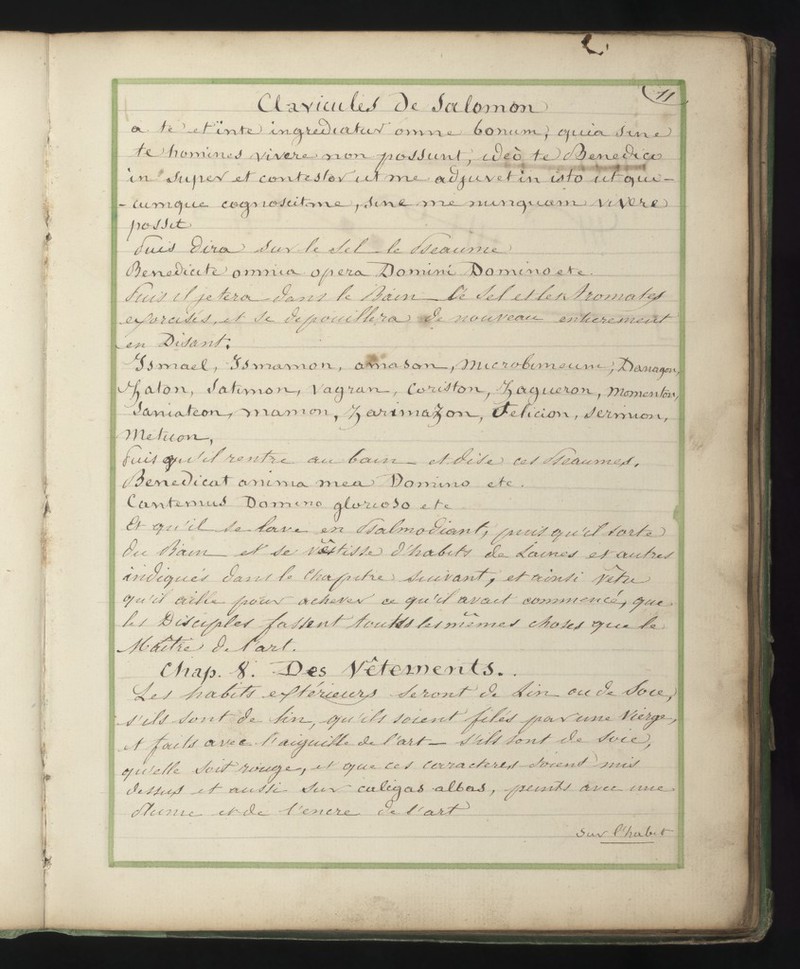 11
Clavicules De Salomon
a te et inte ingrediatur omne bonum; quia sine
te homines vivere non possunt, ideò te Benedico
in super et contestor ut me adjuvet in isto ut qui-
-cumque cognoscitme, sine me nunquam vivere
possit
Puis Dira sur le Sel le Pseaume
Benedicite omnia opera Domini Domino etc.
Puis il jetera dans le Bain le Sel et les Aromates
exorcisés, et se depouillera de nouveau entierement
en Disant;
Ismael, Ismamon, amason, Microbimeum, Danagon,
Zaton, Satimon, Vagran, Coriston, Zagueron, Momenton,
Saniateon, mamon, Zarimazon, Felicion, Sermion,
Metuon,
Puis qu'il rentre au bain et dise ces Pseaumes,
Benedicat anima mea Domino etc.
Cantemus Domino glorioso etc
Et qu'il se lave en Psalmodiant, puis qu'il sorte
du Bain et se vêstisse d'habits de Laines et autres
indiqués dans le Chapitre suivant, et ainsi vêtu
qu'il aille pour achever ce qu'il avait commencé, que
les Disciples fassent toutes les mêmes choses que le
Maître de l'art.
Chap. 8. Des Vêtements.
Les habits extérieurs seront de Lin ou de Soie,
s'ils sont de lin, qu'ils soient filés par une Vierge,
et faits avec l'aiguille de l'art - s'ils sont de soie,
qu'elle soit rouge, et que ces caracteres soient mis
dessus et aussi sur caligas albas, peints avec une
Plume et de l'encre de l'art
Sur l'habit